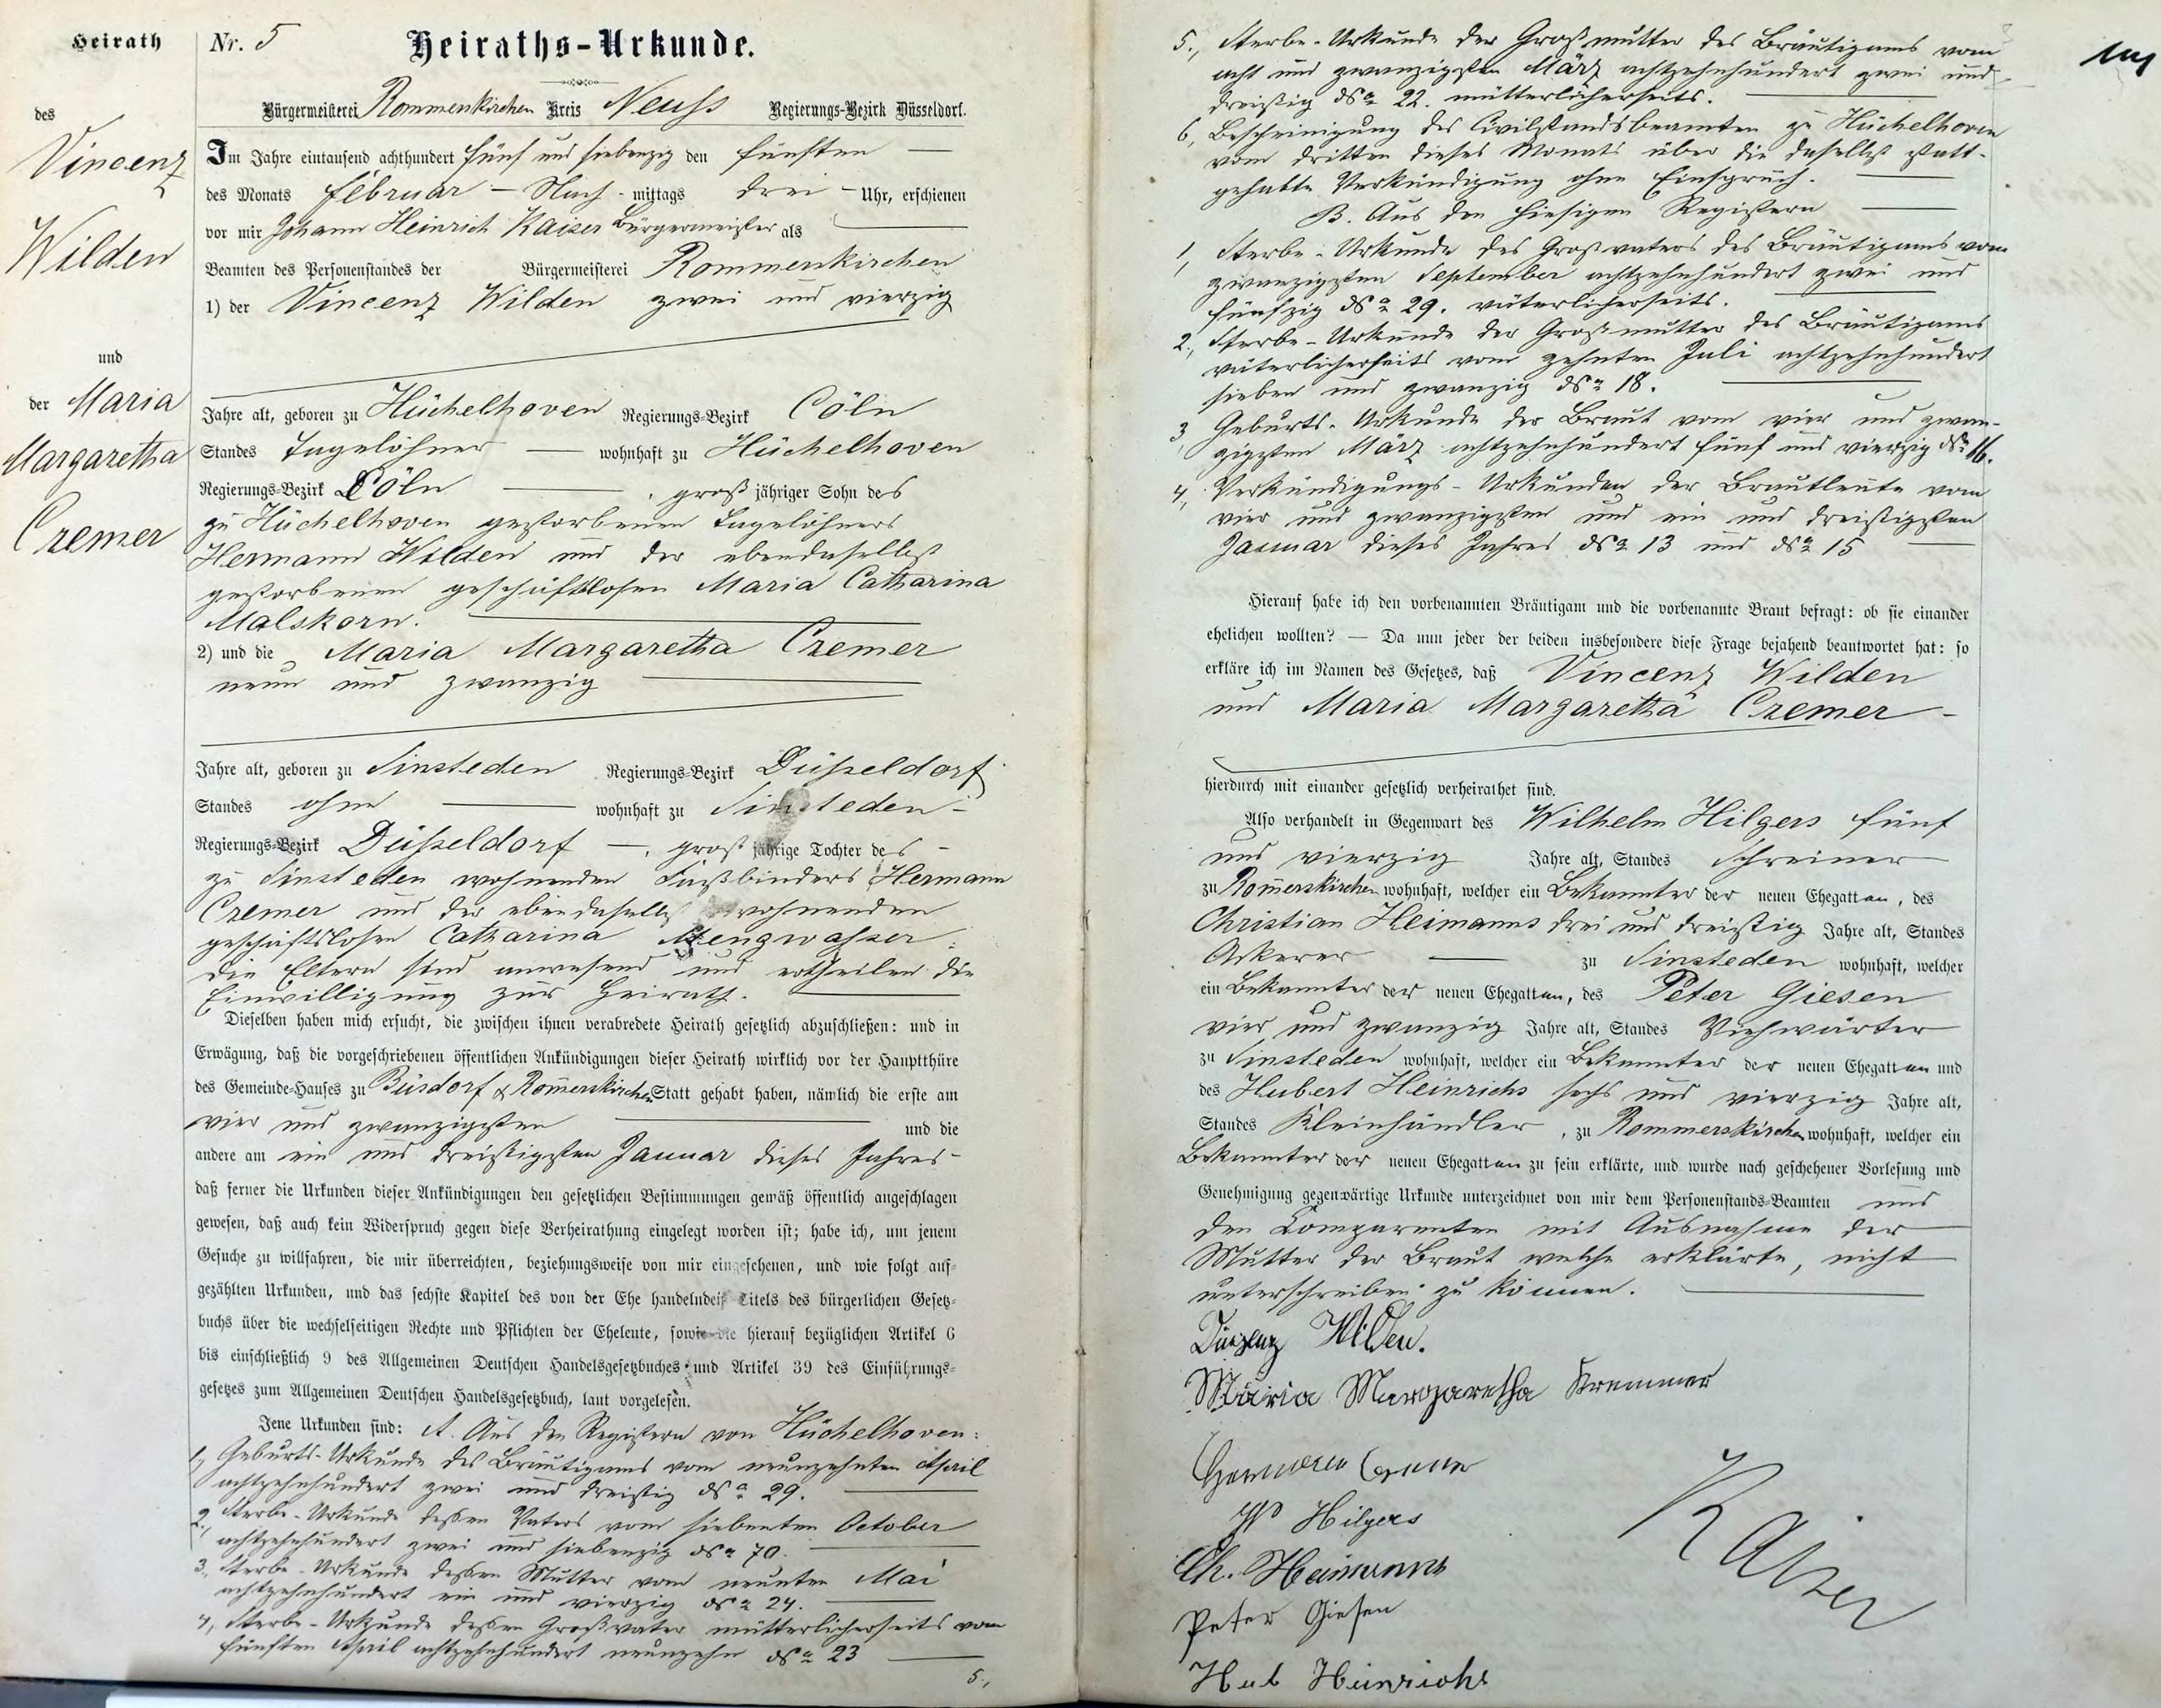 Heirath
des
Vincenz
Wilden
und
der Maria
Margaretha
Cremer
Nr. 5
Heiraths-Urkunde.
Bürgermeisterei Rommerskirchen Kreis Neuss Regierungs-Bezirk Düsseldorf.
Im Jahre eintausend achthundert fünf und siebenzig den fünften
des Monats Februar – Nach - mittags drei – Uhr, erschienen
vor mir Johann Heinrich Kaiser Bürgermeister als
Beamten des Personenstandes der Bürgermeisterei Rommerskirchen
1) der Vincenz Wilden zwei und vierzig
Jahre alt, geboren zu Hüchelhoven Regierungs-Bezirk Cöln
Standes Tagelöhner — wohnhaft zu Hüchelhoven
Regierungs-Bezirk Cöln —, groß jähriger Sohn des
zu Hüchelhoven gestorbenen Tagelöhners
Hermann Wilden und der ebendaselbst
gestorbenen geschäftslosen Maria Catharina
Malskorn.
2) und die Maria Margaretha Cremer
neun und zwanzig
Jahre alt, geboren zu Sinsteden Regierungs-Bezirk Düsseldorf
Standes ohne — wohnhaft zu Sinsteden –
Regierungs-Bezirk Düsseldorf —, groß jährige Tochter des –
zu Sinsteden wohnenden Faßbinders Hermann
Cremer und der ebendaselbst wohnenden
geschäftslosen Catharina Mengwasser.
Die Eltern sind anwesend und ertheilen die
Einwilligung zur Heirath.
Dieselben haben mich ersucht, die zwischen ihnen verabredete Heirath gesetzlich abzuschließen: und in
Erwägung, daß die vorgeschriebenen öffentlichen Ankündigungen dieser Heirath wirklich vor der Hauptthüre
des Gemeinde-Hauses zu Büsdorf & Rom̄erskirchen Statt gehabt haben, nämlich die erste am
vier und zwanzigsten — und die
andere am ein und dreißigsten Januar dieses Jahres –
daß ferner die Urkunden dieser Ankündigungen den gesetzlichen Bestimmungen gemäß öffentlich angeschlagen
gewesen, daß auch kein Widerspruch gegen diese Verheirathung eingelegt worden ist; habe ich, um jenem
Gesuche zu willfahren, die mir überreichten, beziehungsweise von mir eingesehenen, und wie folgt auf-
gezählten Urkunden, und das sechste Kapitel des von der Ehe handelnden Titels des bürgerlichen Gesetz-
buchs über die wechselseitigen Rechte und Pflichten der Eheleute, sowie die hierauf bezüglichen Artikel 6
bis einschließlich 9 des Allgemeinen Deutschen Handelsgesetzbuches und Artikel 39 des Einführungs-
gesetzes zum Allgemeinen Deutschen Handelsgesetzbuch, laut vorgelesen.
Jene Urkunden sind: A. Aus den Registern von Hüchelhoven:
1., Geburts-Urkunde des Bräutigams vom neunzehnten April
achtzehnhundert zwei und dreißig No 29.
2., Sterbe-Urkunde dessen Vaters vom siebenten October
achtzehnhundert zwei und siebenzig No 70.
3., Sterbe-Urkunde dessen Mutter vom neunten Mai
achtzehnhundert ein und vierzig No 24.
4, Sterbe-Urkunde dessen Großvater mütterlicherseits vom
fünften April achtzehnhundert neunzehn No 23
5.,
5., Sterbe-Urkunde der Großmutter des Bräutigams vom
acht und zwanzigsten März achtzehnhundert zwei und
dreißig No 22. mütterlicherseits.
6, Bescheinigung des Civilstandsbeamten zu Hüchelhoven
vom dritten dieses Monats über die daselbst statt-
gehabte Verkündigung ohne Einspruch.
B. Aus den hiesigen Registern
1, Sterbe-Urkunde des Großvaters des Bräutigams vom
zwanzigsten September achtzehnhundert zwei und
fünfzig No 29. väterlicherseits.
2., Sterbe-Urkunde der Großmutter des Bräutigams
väterlicherseits vom zehnten Juli achtzehnhundert
sieben und zwanzig No 18.
3, Geburts-Urkunde der Braut vom vier und zwan-
zigsten März achtzehnhundert fünf und vierzig No 16.
4, Verkündigungs-Urkunden der Brautleute vom
vier und zwanzigsten und ein und dreißigsten
Januar dieses Jahres No 13 und No 15
Hierauf habe ich den vorbenannten Bräutigam und die vorbenannte Braut befragt: ob sie einander
ehelichen wollten? — Da nun jeder der beiden insbesondere diese Frage bejahend beantwortet hat: so
erkläre ich im Namen des Gesetzes, daß Vincenz Wilden
und Maria Margaretha Cremer –
hierdurch mit einander gesetzlich verheirathet sind.
Also verhandelt in Gegenwart des Wilhelm Hilgers fünf
und vierzig Jahre alt, Standes Schreiner
zu Rom̄erskirchen wohnhaft, welcher ein Bekannter der neuen Ehegatten, des
Christian Heimanns drei und dreißig Jahre alt, Standes
Ackerer — zu Sinsteden wohnhaft, welcher
ein Bekannter der neuen Ehegatten, des Peter Giesen
vier und zwanzig Jahre alt, Standes Viehwärter
zu Sinsteden wohnhaft, welcher ein Bekannter der neuen Ehegatten und
des Hubert Heinrichs sechs und vierzig Jahre alt,
Standes Kleinhändler, zu Rommerskirchen wohnhaft, welcher ein
Bekannter der neuen Ehegatten zu sein erklärte, und wurde nach geschehener Vorlesung und
Genehmigung gegenwärtige Urkunde unterzeichnet von mir dem Personenstands-Beamten und
den Comparenten mit Ausnahme der
Mutter der Braut welche erklärte, nicht
unterschreiben zu können.
Vinzenz Wilden.
Maria Margaretha Kremmer
Hermann Cremer
W Hilgers
Ch. Heimanns
Kaiser
Peter Giesen
Hub Heinrichs